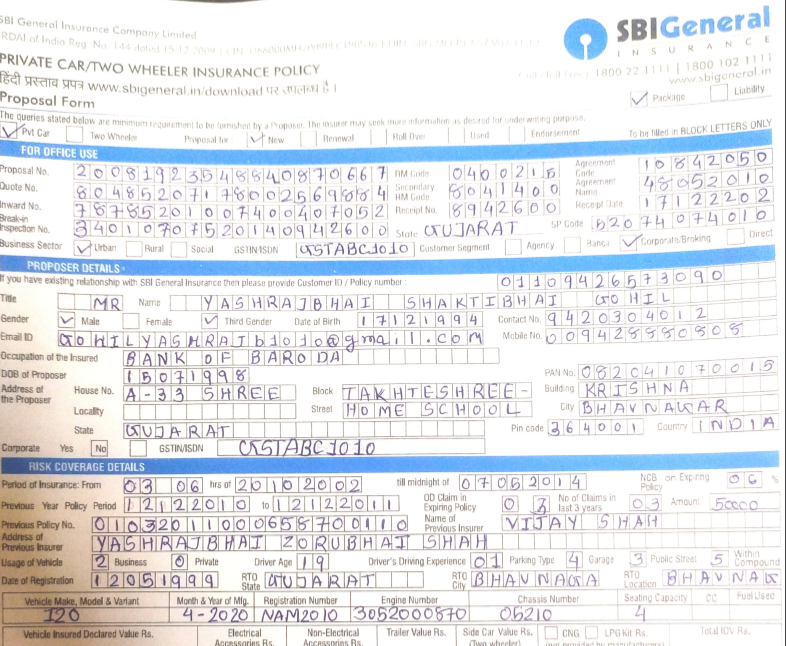 SBI General Insurance Company Limited
SBIGeneral
INSURANCE
PRIVATE CAR/TWO WHEELER INSURANCE POLICY
1800 22 1111 | 1800 102 1111
हिंदी प्रस्ताव प्रपत्र www.sbigeneral.in/download पर उपलब्ध है।
www.sbigeneral.in
Proposal Form
Package Liability
The queries stated below are minimum requirement to be furnished by a Proposer. The insurer may seek more information as desired for underwriting purpose.
Pvt Car Two Wheeler Proposal for New Renewal Roll Over Used Endorsement To be filled in BLOCK LETTERS ONLY
FOR OFFICE USE
Proposal No. 20081923548840870667 RM Code 0460215 Agreement Code 10842050
Quote No. 80485207178002569884 Secondary RM Code 8041400 Agreement Name 48052010
Inward No. 78785201007400407052 Receipt No. 8942600 Receipt Date 17122202
Break-in Inspection No. 34010707520140942600 State GUJARAT SP Code 52074074010
Business Sector Urban Rural Social GSTIN/ISDN GSTABC1010 Customer Segment Agency Banca Corporate/Broking Direct
PROPOSER DETAILS
If you have existing relationship with SBI General Insurance then please provide Customer ID / Policy number: 0110942657 3090
Title MR Name YASHRAJBHAI SHAKTIBHAI GOHIL
Gender Male Female Third Gender Date of Birth 17121994 Contact No. 9420304012
Email ID GOHILYASHRAJb1010@gmail.com Mobile No. 009428880808
Occupation of the Insured BANK OF BARODA
DOB of Proposer 15071998 PAN No. 0820410 70015
Address of the Proposer House No. A-33 SHREE Block TAKHTESHREE- Building KRISHNA
Locality Street HOME SCHOOL City BHAVNAGAR
State GUJARAT Pin code 364001 Country INDIA
Corporate Yes No GSTIN/ISDN GSTABC1010
RISK COVERAGE DETAILS
Period of Insurance: From 03 06 hrs of 20102002 till midnight of 07052014 NCB on Expiring Policy 06 %
Previous Year Policy Period 12122010 to 12122011 OD Claim in Expiring Policy 03 No of Claims in last 3 years 03 Amount 50000
Previous Policy No. 010320110006587001 10 Name of Previous Insurer VIJAY SHAH
Address of Previous Insurer YASHRAJBHAI ZORUBHAI SHAH
Usage of Vehicle 2 Business 0 Private Driver Age 19 Driver's Driving Experience 01 Parking Type 4 Garage 3 Public Street 5 Within Compound
Date of Registration 12051999 RTO State GUJARAT RTO City BHAVNAGA RTO Location BHAVNAG
Vehicle Make, Model & Variant Month & Year of Mfg. Registration Number Engine Number Chassis Number Seating Capacity CC Fuel Used
I20 4-2020 NAM2010 3052000870 05210 4
Vehicle Insured Declared Value Rs. Electrical Accessories Rs. Non-Electrical Accessories Rs. Trailer Value Rs. Side Car Value Rs. (Two wheeler) CNG LPG Kit Rs. (not provided by manufacturers) Total IDV Rs.